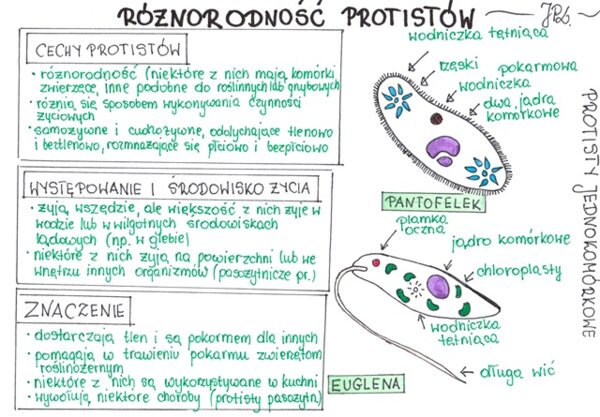 RÓŻNORODNOŚĆ PROTISTÓW
CECHY PROTISTÓW
• różnorodność (niektóre z nich mają komórki
zwierzęce, inne podobne do roślinnych lub grzybowych
• różnią się sposobem wykonywania czynności
życiowych
• samożywne i cudzożywne, oddychające tlenowo
i beztlenowo, rozmnażające się płciowo i bezpłciowo
WYSTĘPOWANIE I ŚRODOWISKO ŻYCIA
• żyją wszędzie, ale większość z nich żyje w
wodzie lub w wilgotnych środowiskach
lądowych (np. w glebie)
• niektóre z nich żyją na powierzchni lub we
wnętrzu innych organizmów (pasożytnicze pr.)
ZNACZENIE
• dostarczają tlen i są pokarmem dla innych
• pomagają w trawieniu pokarmu zwierzętom
roślinożernym
• niektóre z nich są wykorzystywane w kuchni
• wywołują niektóre choroby (protisty pasożytn.)
wodniczka tętniąca
rzęski
pokarmowa
wodniczka
dwa jądra
komórkowe
PANTOFELEK
plamka
oczna
jądro komórkowe
chloroplasty
wodniczka
tętniąca
długa wić
EUGLENA
PROTISTY JEDNOKOMÓRKOWE